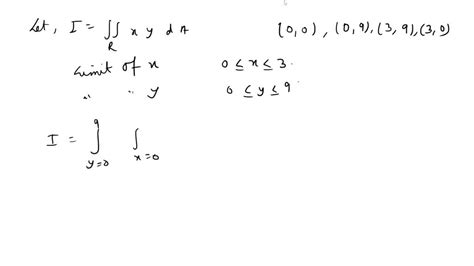 Let, I = ∬ x y dA (0,0), (0,9), (3,9), (3,0)
R
Limit of x 0 ≤ x ≤ 3.
" " y 0 ≤ y ≤ 9
I = ∫_{y=0}^{9} ∫_{x=0}